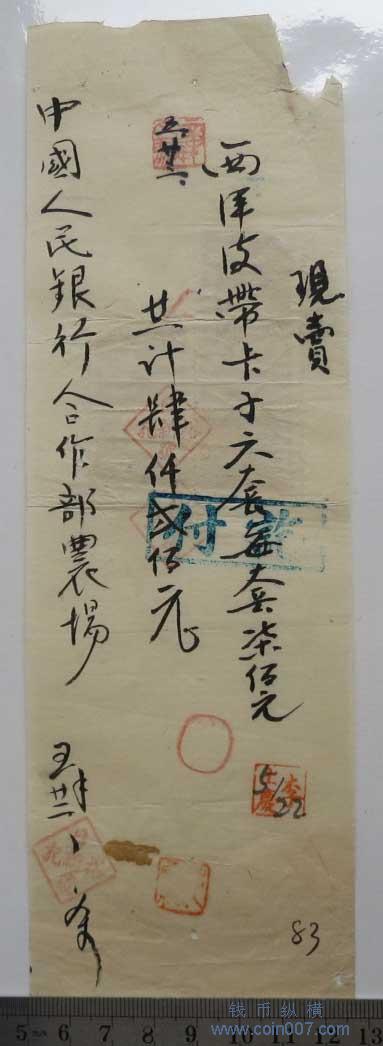 現賣
西洋皮帶卡子六套每套柒佰元
共計肆仟弍佰元
五廿二
付訖
中國人民銀行合作部農場
5/22
83
钱币纵横
www.coin007.com
5 6 7 8 9 10 11 12 13